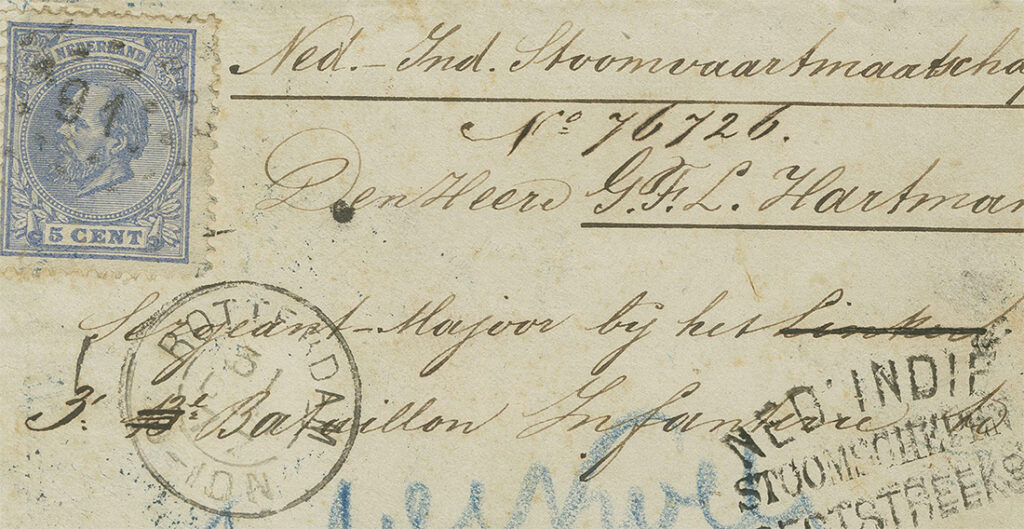 NEDERLAND
91
5 CENT
Ned.- Ind. Stoomvaartmaatschap
No 76726.
Den Heer G.F.L. Hartman
Sergeant-Majoor bij het Linker
3e Bataillon Infanterie
ROTTERDAM
NED INDIE
STOOMSCHEPEN
RECHTSTREEKS